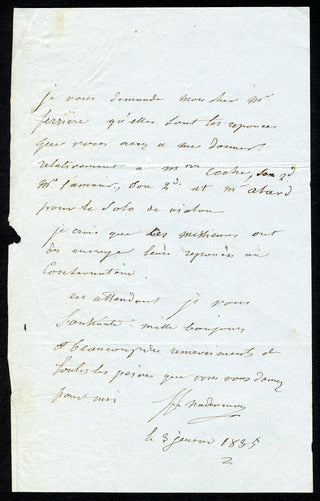 je vous demande mon cher Mr
ferrière qu'elles sont les reponces
que vous avez a me donner
relativement a Mrs Coche, son 2d
Mr Jamour, son 2d. et Mr alard
pour le Solo de violon
je crois que les messieurs ont
du envoyé leurs reponces au
Conservatoire.
en attendant je vous
Souhaite mille bonjours
et beaucoup de remerciments de
toutes les peines que vous vous donnez
pour moi
le 3 janvier 1835